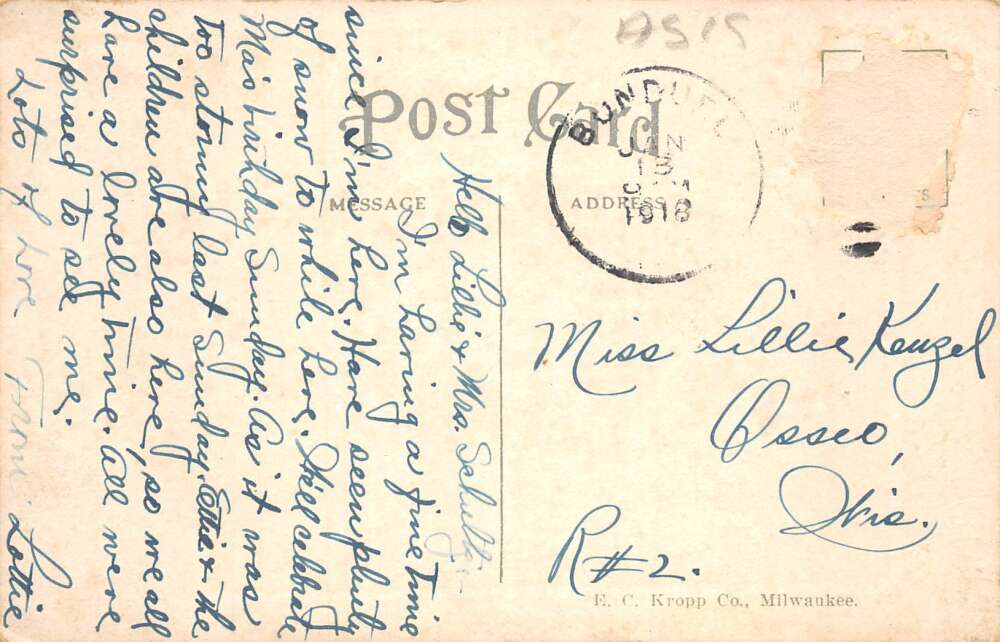 ASIS
POST CARD
BONDUEL
JAN
13
1918
MESSAGE
ADDRESS
Hello Lillie & Mrs. Schultz:-
I'm having a fine time
since I'm here. Have seen plenty
of snow to while here. We'll celebrate
Ma's birthday Sunday. As it was
too stormy last Sunday. Ettie & the
children are also here, so we all
have a lovely time. All were
surprised to see me.
Lots of love from Lottie
Miss Lillie Kenzel
Osseo,
Wis.
R#2.
E. C. Kropp Co., Milwaukee.